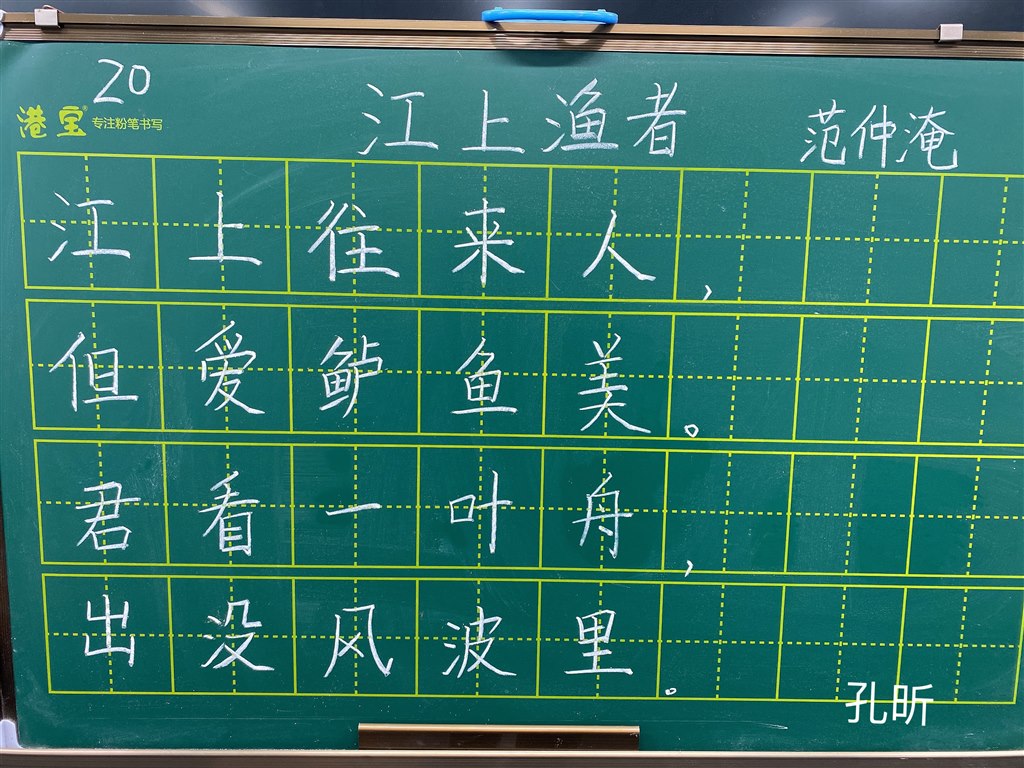 20
港宝® 专注粉笔书写
江上渔者 范仲淹
江上往来人，
但爱鲈鱼美。
君看一叶舟，
出没风波里。
孔昕